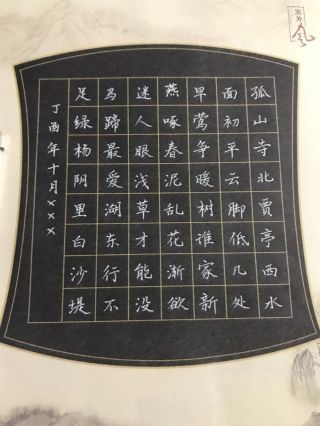 孤山寺北贾亭西水
面初平云脚低几处
早莺争暖树谁家新
燕啄春泥乱花渐欲
迷人眼浅草才能没
马蹄最爱湖东行不
足绿杨阴里白沙堤
丁酉年十月×××